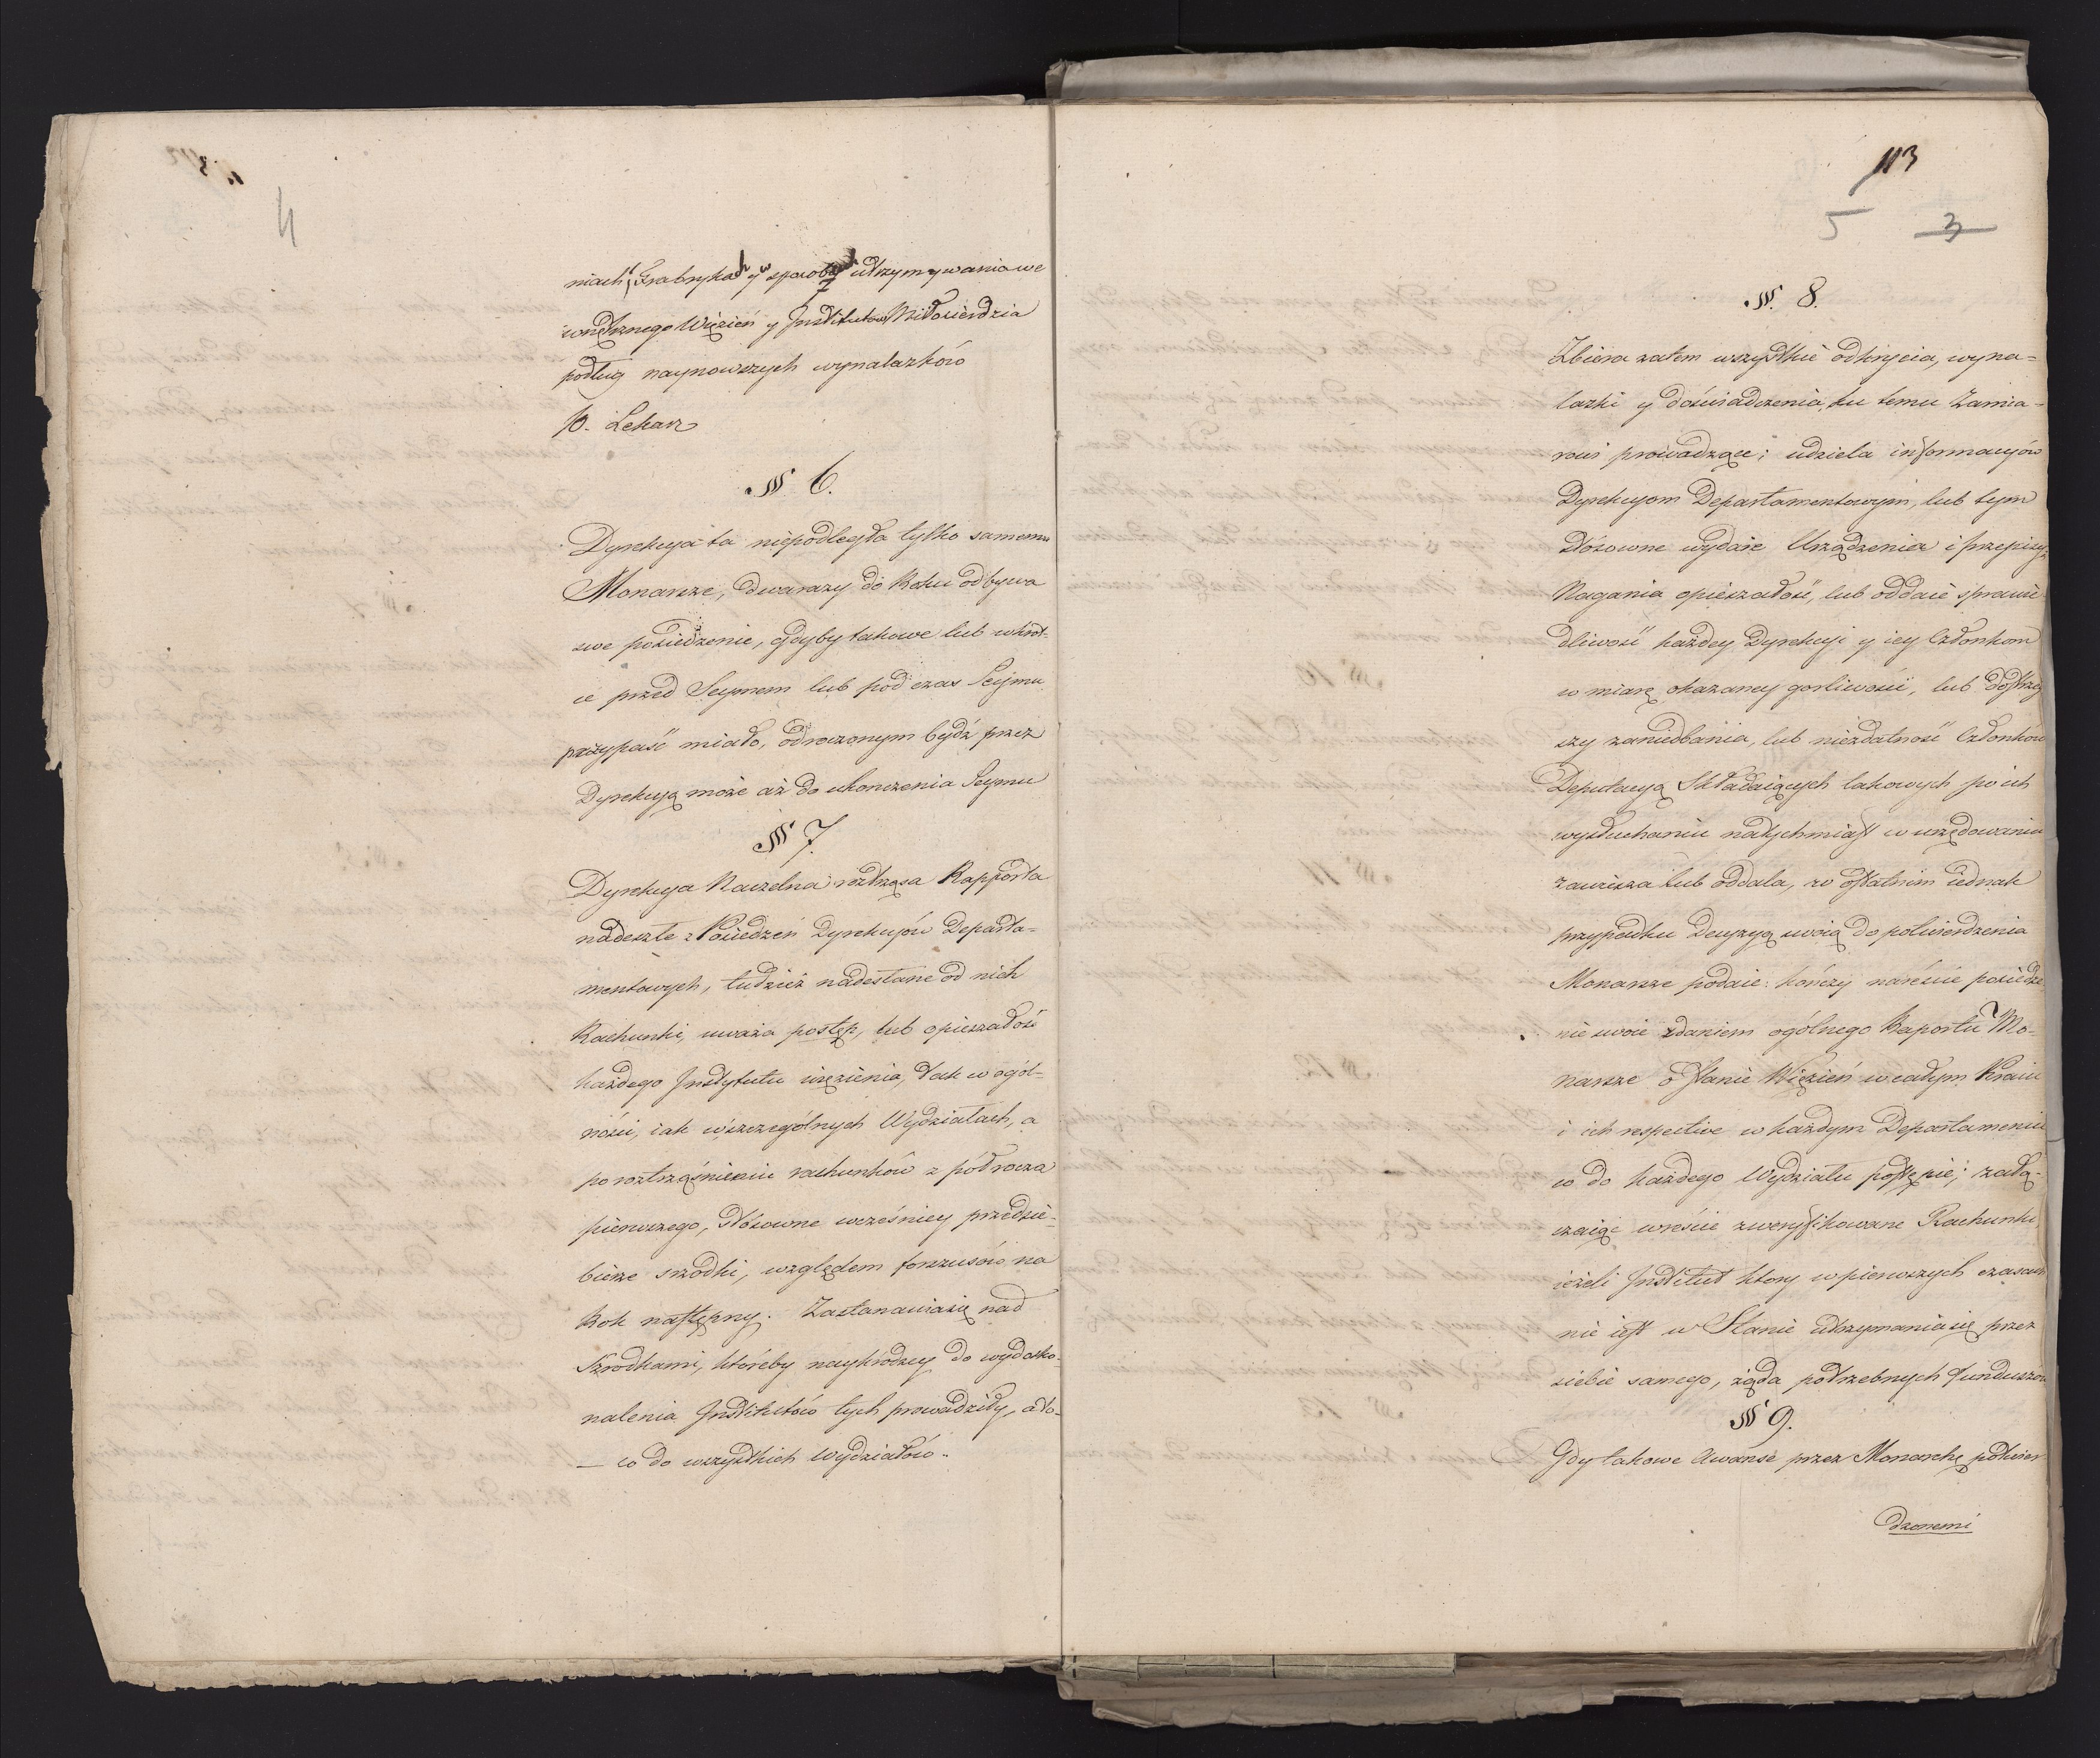 4
niach, Frabrykach y w sposobach utrzymywania we
wnętrznego Więzień y Institutów Miłosierdzia
podług naynowszych wynalazków
10. Lekarz
§ 6.
Dyrekcya ta niepodległa tylko samemu
Monarsze, dwarazy do Roku odbywa
swe posiedzenie, gdyby takowe lub wkrót-
ce przed Seymem lub pod czas Seymu
przypaść miało, odroczonym bydź przez
Dyrekcyą może aż do ukonczenia Seymu
§ 7.
Dyrekcya Naczelna roztrząsa Rapporta
nadeszłe z Posiedzeń Dyrekcyów Departa-
mentowych, tudzież nadesłane od nich
Rachunki, uważa postęp, lub opieszałość
każdego Instytutu więzienia, tak w ogól-
ności, iak w szczególnych Wydziałach, a
po roztrząśnieniu rachunków z półrocza
pierwszego, stósowne wcześniey przedsię-
bierze srzodki, względem forszusów na
Rok następny. Zastanawia się nad
Szrodkami, któreby naykrodzey do wydosko-
nalenia Institutów tych prowadziły, a to
— co do wszystkich Wydziałów.
113
5 3
§ 8.
Zbiera zatem wszystkie odkrycia, wyna-
lazki y doświadczenia, ku temu Zamia-
rowi prowadzące; udziela informacyów
Dyrekcyom Departamentowym, lub tym
stósowne wydaie Urządzenia i przepisy,
Nagania opieszałość, lub oddaie sprawie
dliwość każdey Dyrekcyi y iey Członkom
w miarę okazaney gorliwości, lub dostrzeg
szy zaniedbania, lub niezdatność Członków
Deputacyą Składaiących takowych po ich
wysłuchaniu natychmiast w urzędowaniu
zawiesza lub oddala, w ostatnim iednak
przypadku Decyzyą swoią do potwierdzenia
Monarsze podaie: kończy nareście posiedze
nie swoie zdaniem ogólnego Raportu Mo-
narsze o stanie Więzień w całym Kraiu
i ich respective w każdym Departamencie
co do każdego Wydziału postępie; załą-
czaiąc wreście zweryfikowane Rachunki,
ieżeli Institut ktory w pierwszych czasach
nie iest w Stanie utrzymania się przez
siebie samego, żąda potrzebnych funduszów
§ 9.
Gdy takowe Awanse przez Monarchę potwier
dzonemi